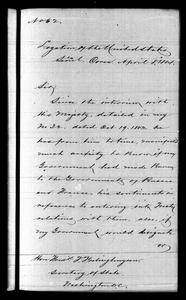 No 62.
Legation of the United States
Seoul Corea April 8" 1884.
Sir
Since the interview with
His Majesty, detailed in my
No 32. dated Oct 19. 1883. he
has from time to time, manifested
much anxiety to know if my
Government, had made known
to the Governments of Russia
and France, his sentiments in
reference to entering into Treaty
relations with them, also, if
my Government would
or
Hon Fredk T Frelinghuysen
Secretary of State
Washington DC.